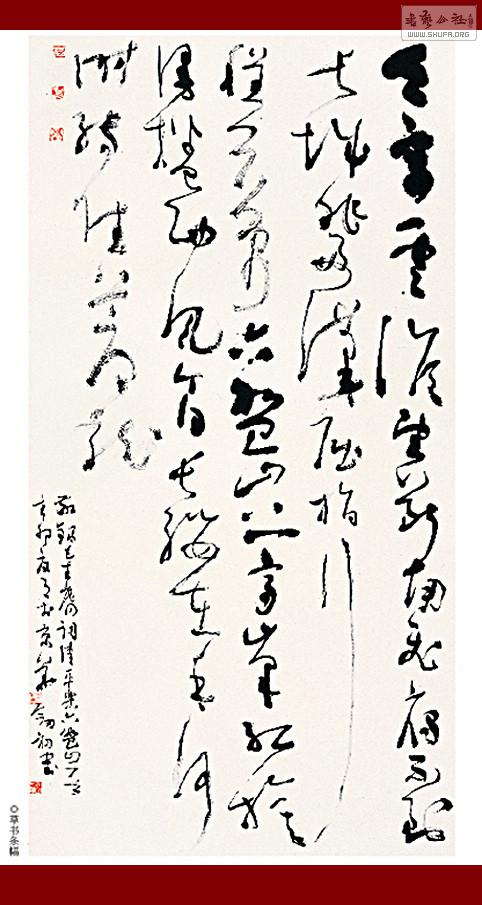 書藝公社
WWW.SHUFA.ORG
天高雲淡望断南飛雁不到
长城非好漢屈指行
程二萬六盤山上高峰红旗
漫捲西风今日长缨在手何
时缚住苍龙
敬録毛主席词清平樂六盤山一首
辛卯夏月於京華
◎草书条幅